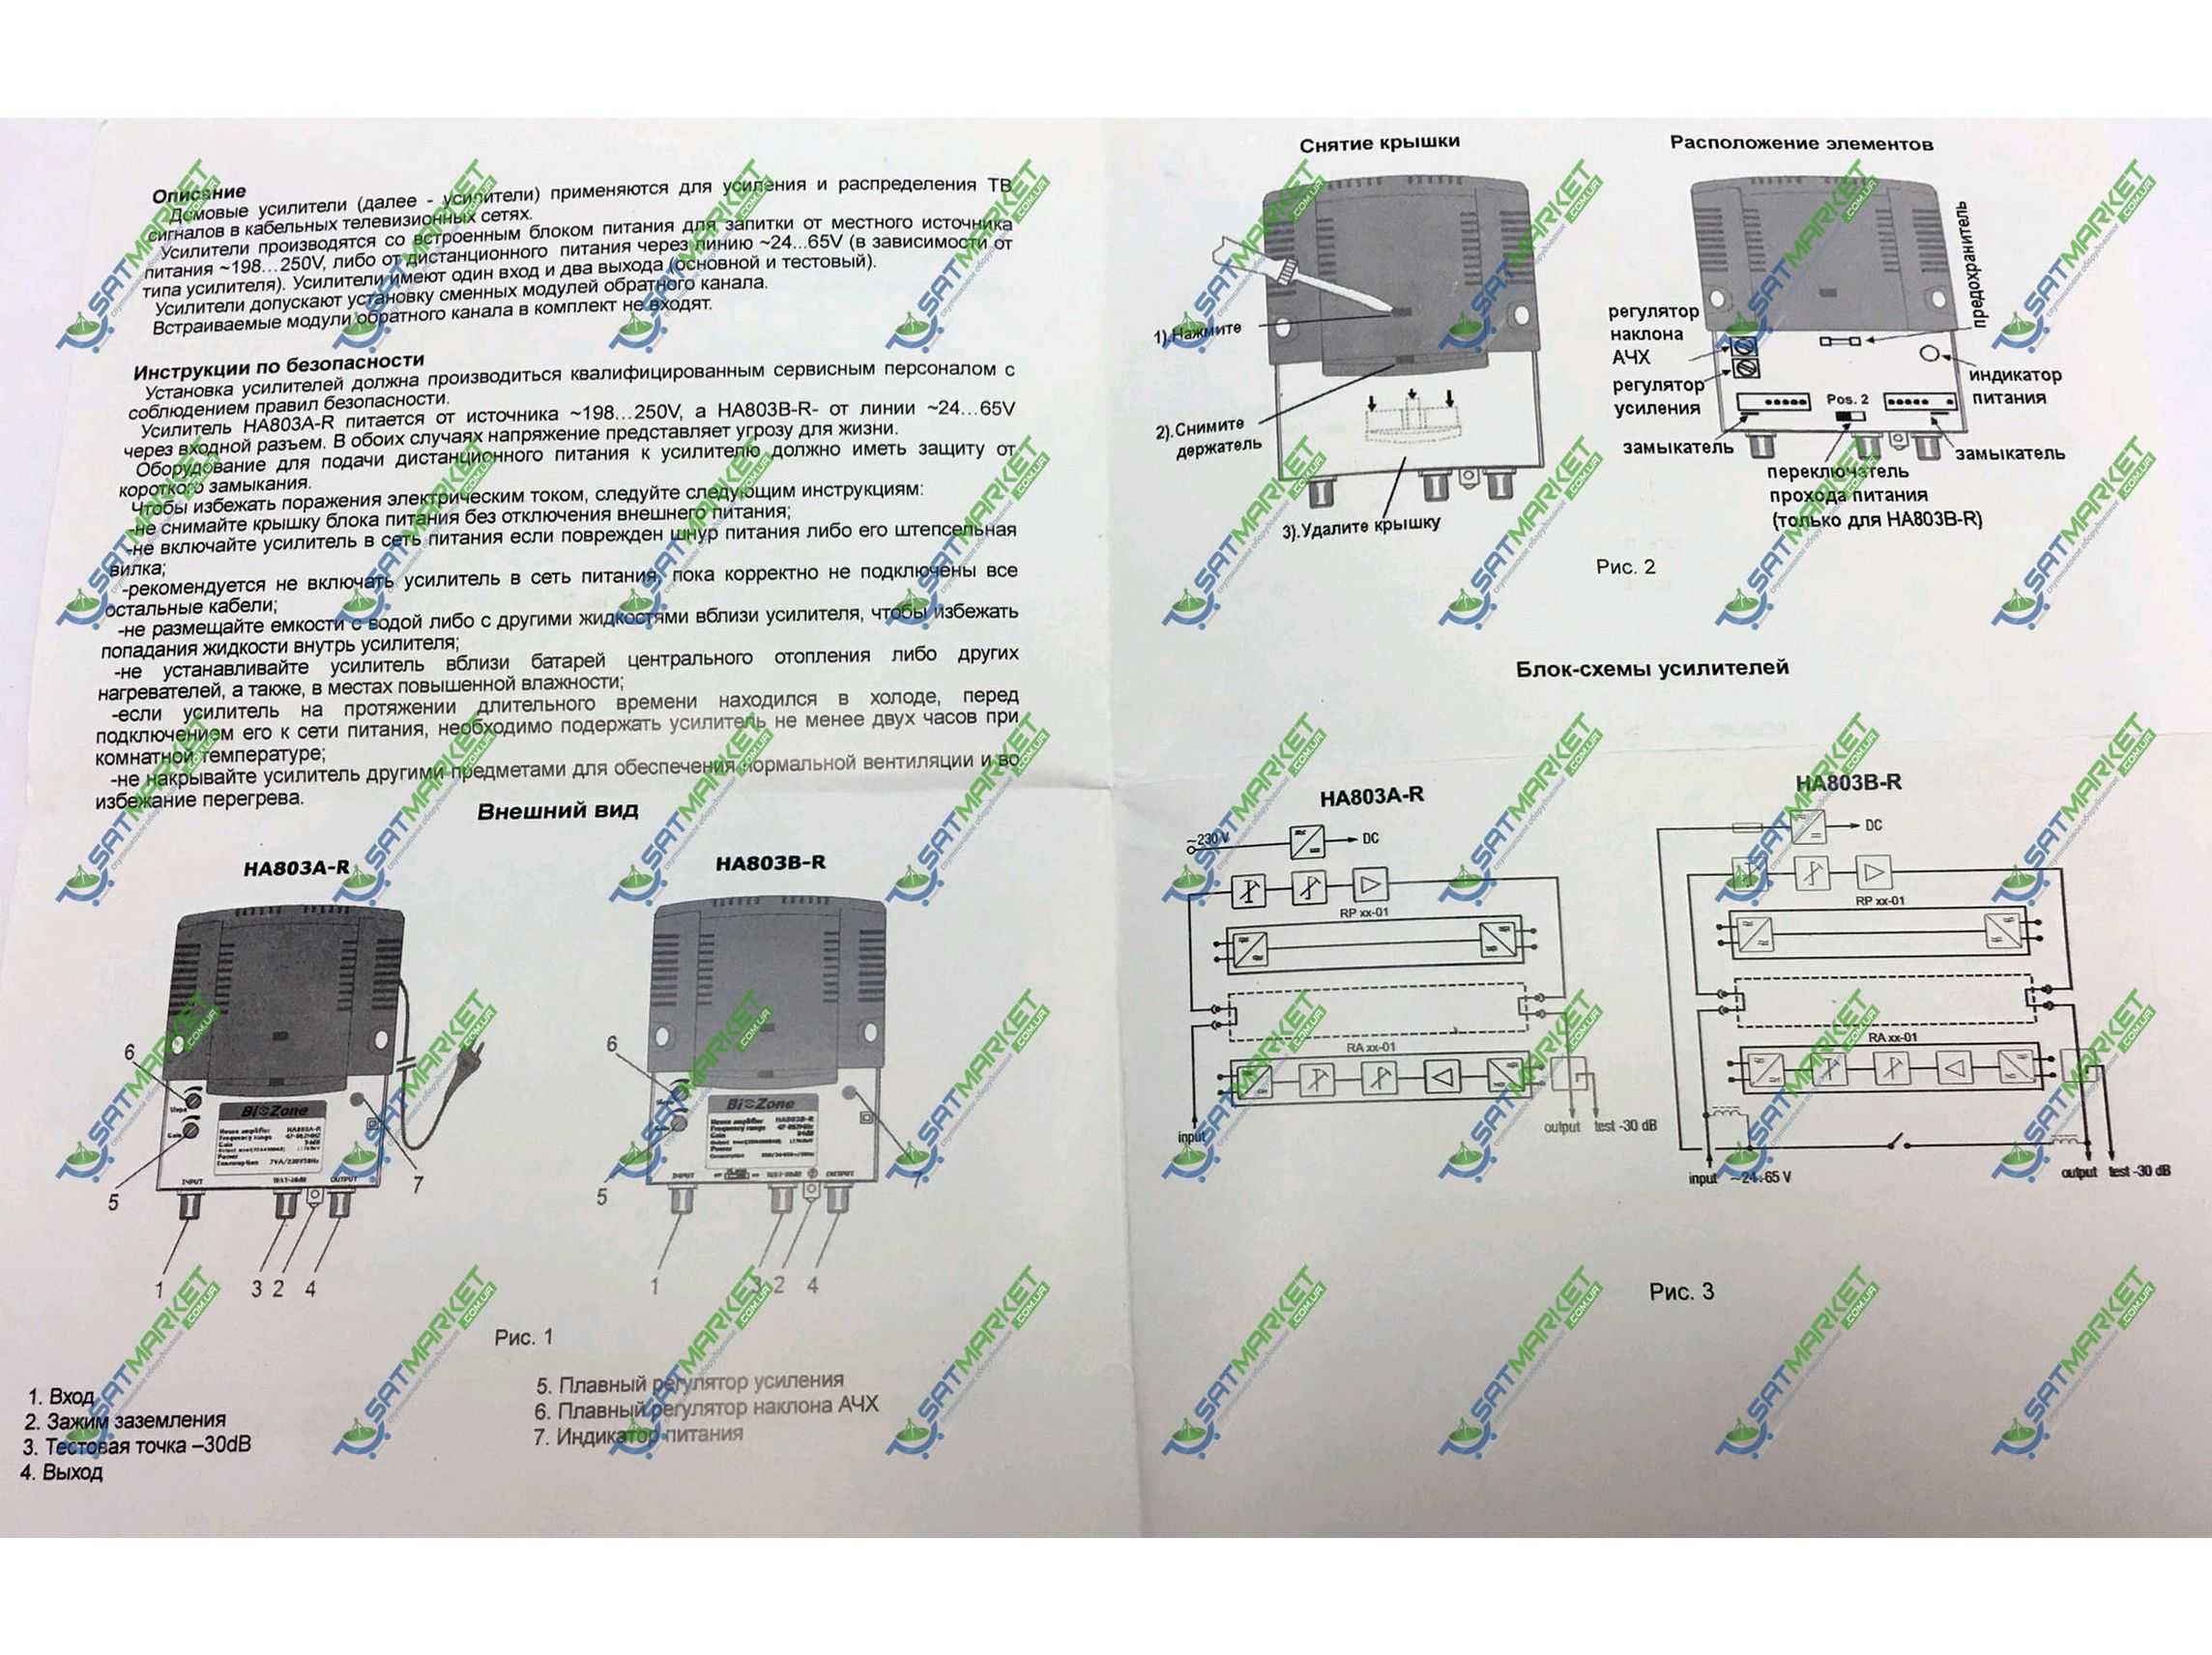 Описание
Домовые усилители (далее - усилители) применяются для усиления и распределения ТВ
сигналов в кабельных телевизионных сетях.
Усилители производятся со встроенным блоком питания для запитки от местного источника
питания ~198...250V, либо от дистанционного питания через линию ~24...65V (в зависимости от
типа усилителя). Усилители имеют один вход и два выхода (основной и тестовый).
Усилители допускают установку сменных модулей обратного канала.
Встраиваемые модули обратного канала в комплект не входят.
Инструкции по безопасности
Установка усилителей должна производиться квалифицированным сервисным персоналом с
соблюдением правил безопасности.
Усилитель HA803A-R питается от источника ~198...250V, а HA803B-R- от линии ~24...65V
через входной разъем. В обоих случаях напряжение представляет угрозу для жизни.
Оборудование для подачи дистанционного питания к усилителю должно иметь защиту от
короткого замыкания.
Чтобы избежать поражения электрическим током, следуйте следующим инструкциям:
-не снимайте крышку блока питания без отключения внешнего питания;
-не включайте усилитель в сеть питания если поврежден шнур питания либо его штепсельная
вилка;
-рекомендуется не включать усилитель в сеть питания, пока корректно не подключены все
остальные кабели;
-не размещайте емкости с водой либо с другими жидкостями вблизи усилителя, чтобы избежать
попадания жидкости внутрь усилителя;
-не устанавливайте усилитель вблизи батарей центрального отопления либо других
нагревателей, а также, в местах повышенной влажности;
-если усилитель на протяжении длительного времени находился в холоде, перед
подключением его к сети питания, необходимо подержать усилитель не менее двух часов при
комнатной температуре;
-не накрывайте усилитель другими предметами для обеспечения нормальной вентиляции и во
избежание перегрева.
Внешний вид
HA803A-R
HA803B-R
6
5
7
Slope
Gain
Bi-Zone
House amplifier HA803A-R
Frequency range
Gain
Power
Consumption 7VA/230V50Hz
INPUT
TEST-30dB
OUTPUT
1
3 2 4
6
5
7
Bi-Zone
House amplifier HA803B-R
Frequency range
Gain
Power
Consumption
INPUT
TEST-30dB
OUTPUT
1
3 2 4
Рис. 1
1. Вход
2. Зажим заземления
3. Тестовая точка –30dB
4. Выход
5. Плавный регулятор усиления
6. Плавный регулятор наклона АЧХ
7. Индикатор питания
Снятие крышки
1).Нажмите
2).Снимите
держатель
3).Удалите крышку
Расположение элементов
предохранитель
регулятор
наклона
АЧХ
регулятор
усиления
замыкатель
Pos. 2
индикатор
питания
замыкатель
переключатель
прохода питания
(только для HA803B-R)
Рис. 2
Блок-схемы усилителей
HA803A-R
~230 V
DC
RP xx-01
RA xx-01
input
output
test -30 dB
HA803B-R
DC
RP xx-01
RA xx-01
input
~24÷65 V
output
test -30 dB
Рис. 3
SATMARKET
.COM.UA
спутниковое оборудование